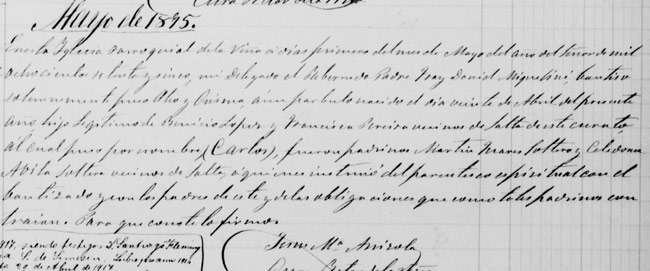 Mayo de 1895.
En esta Iglesia Parroquial de la Viña a dias primero del mes de Mayo del año del Señor de mil
ochocientos setenta y cinco, mi Delegado el Reverendo Padre Fray Daniel Miguelini, bautizó
solemnemente puso Oleo y Crisma, á un parbulo nacido el dia veinte de Abril del presente
año hijo legitimo de Benicio Lopez y Francisca Pereira vecinos de Salta de este curato
al cual puso por nombre (Carlos), fueron padrinos Martin Mares soltero y Celedonia
Abila soltera vecinos de Salta, a quienes instruió del parentesco espiritual con el
bautizado y con los padres de este y de las obligaciones que como tales padrinos con
traian. Para que conste lo firmo.
1917, siendo testigo: D. Santiago Fleming
S. de
de Abril de 1917
Jesus Ma. Arizola